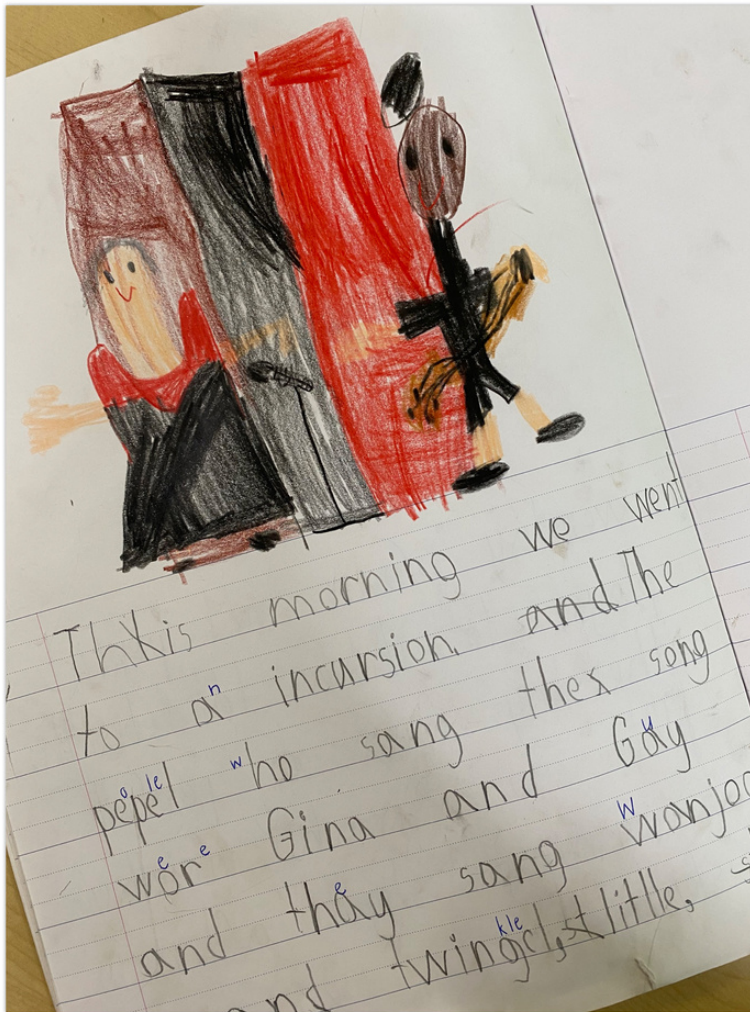 This morning we went
to a n incursion. and The
pepel o le who sang thex song
wor e e Gina and Gay u
and thay e sang wanjoo W
and twingcl, kle st litlle, s